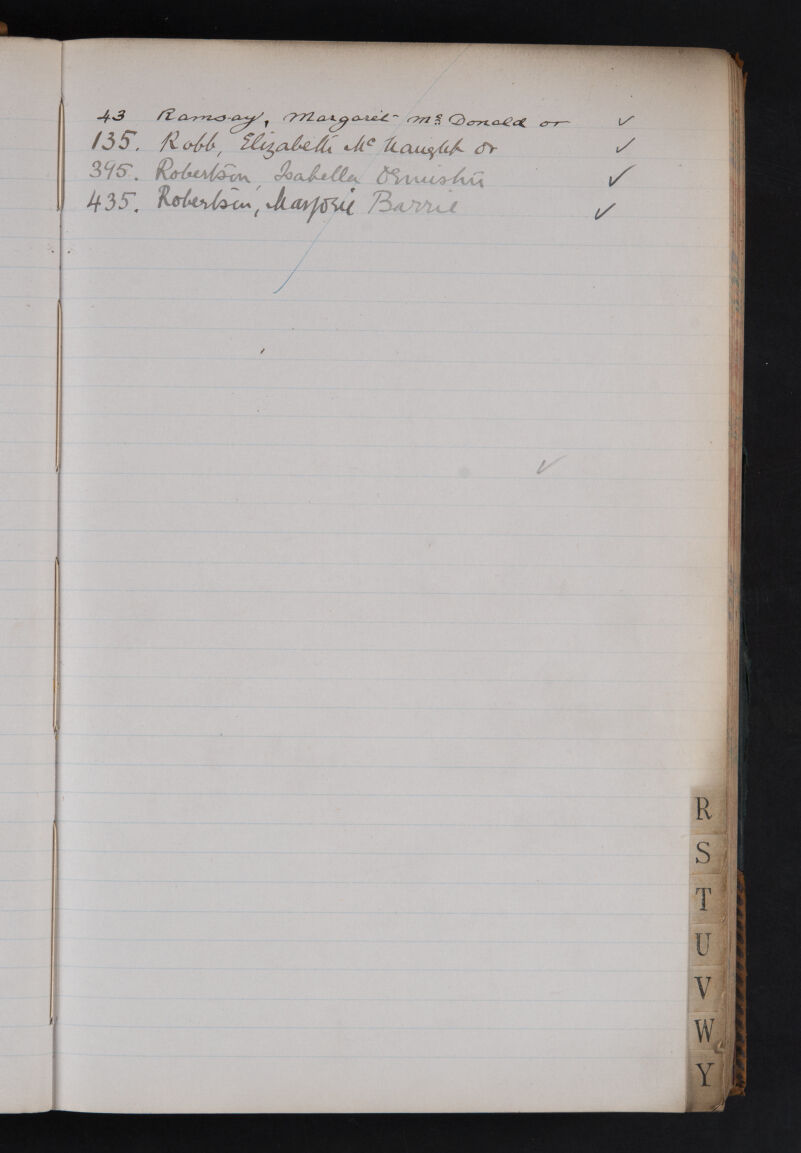 43 Ramsay, Margaret Mc Donald or ✓
135. Robb, Elizabeth Mc Naught or ✓
395. Robertson, Isabella ✓
435. Robertson, Marjorie Barrie ✓
✓
R
S
T
U
V
W
Y